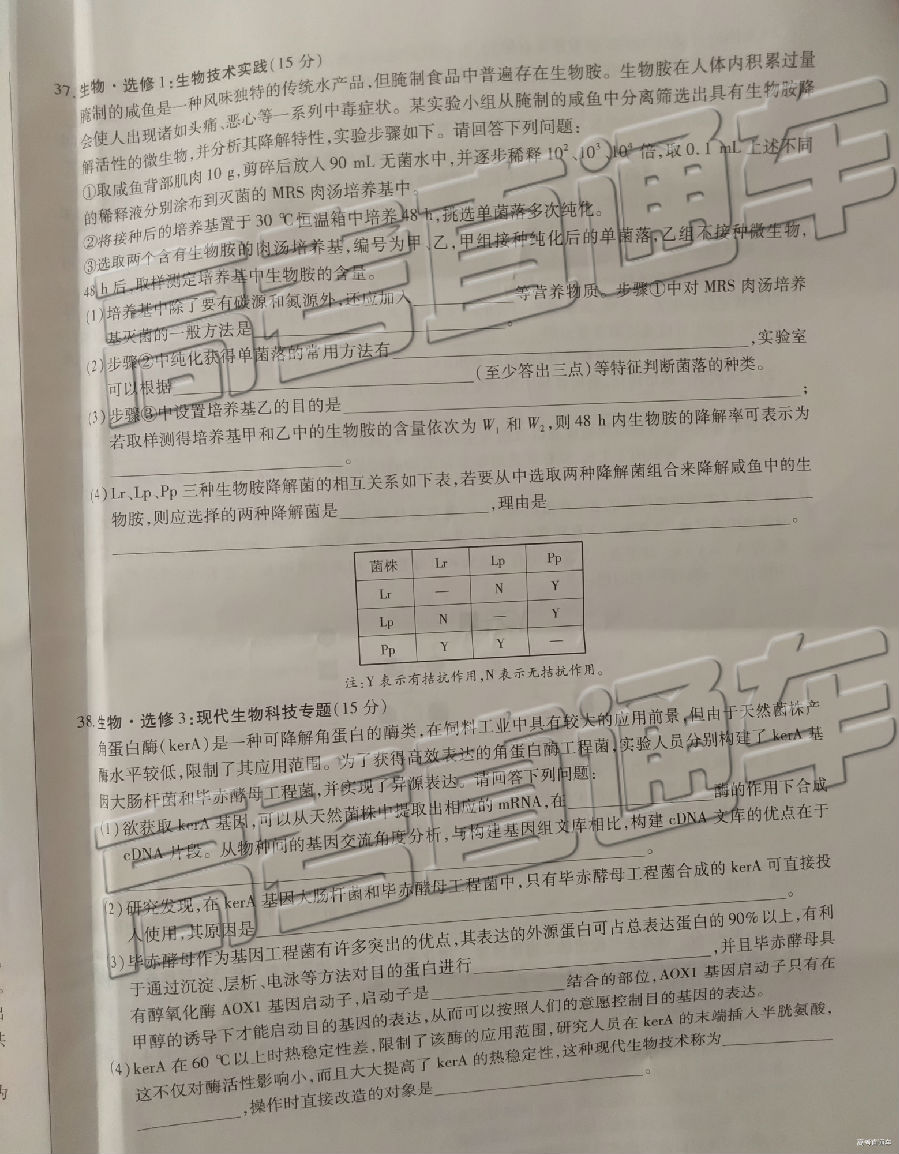 37.生物·选修1:生物技术实践(15分)
腌制的咸鱼是一种风味独特的传统水产品,但腌制食品中普遍存在生物胺。生物胺在人体内积累过量
会使人出现诸如头痛、恶心等一系列中毒症状。某实验小组从腌制的咸鱼中分离筛选出具有生物胺降
解活性的微生物,并分析其降解特性,实验步骤如下。请回答下列问题:
①取咸鱼背部肌肉10 g,剪碎后放入90 mL无菌水中,并逐步稀释10²、10³、 倍,取0.1 mL上述不同
的稀释液分别涂布到灭菌的MRS肉汤培养基中。
②将接种后的培养基置于30 ℃恒温箱中培养48 h,挑选单菌落多次纯化。
③选取两个含有生物胺的肉汤培养基,编号为甲、乙,甲组接种纯化后的单菌落,乙组不接种微生物,
48 h后,取样测定培养基中生物胺的含量。
(1)培养基中除了要有碳源和氮源外,还应加入 等营养物质。步骤①中对MRS肉汤培养
基灭菌的一般方法是 。
(2)步骤②中纯化获得单菌落的常用方法有 ,实验室
可以根据 (至少答出三点)等特征判断菌落的种类。
(3)步骤③中设置培养基乙的目的是 ;
若取样测得培养基甲和乙中的生物胺的含量依次为W₁和W₂,则48 h内生物胺的降解率可表示为
。
(4)Lr、Lp、Pp三种生物胺降解菌的相互关系如下表,若要从中选取两种降解菌组合来降解咸鱼中的生
物胺,则应选择的两种降解菌是 ,理由是
。
菌株 Lr Lp Pp
Lr — N Y
Lp N — Y
Pp Y Y —
注:Y表示有拮抗作用,N表示无拮抗作用。
38.生物·选修3:现代生物科技专题(15分)
角蛋白酶(kerA)是一种可降解角蛋白的酶类,在饲料工业中具有较大的应用前景,但由于天然菌株产
酶水平较低,限制了其应用范围。为了获得高效表达的角蛋白酶工程菌,实验人员分别构建了kerA基
因大肠杆菌和毕赤酵母工程菌,并实现了异源表达。请回答下列问题:
(1)欲获取kerA基因,可以从天然菌株中提取出相应的mRNA,在 酶的作用下合成
cDNA片段。从物种间的基因交流角度分析,与构建基因组文库相比,构建cDNA文库的优点在于
。
(2)研究发现,在kerA基因大肠杆菌和毕赤酵母工程菌中,只有毕赤酵母工程菌合成的kerA可直接投
入使用,其原因是 。
(3)毕赤酵母作为基因工程菌有许多突出的优点,其表达的外源蛋白可占总表达蛋白的90%以上,有利
于通过沉淀、层析、电泳等方法对目的蛋白进行 ,并且毕赤酵母具
有醇氧化酶AOX1基因启动子,启动子是 结合的部位,AOX1基因启动子只有在
甲醇的诱导下才能启动目的基因的表达,从而可以按照人们的意愿控制目的基因的表达。
(4)kerA在60 ℃以上时热稳定性差,限制了该酶的应用范围,研究人员在kerA的末端插入半胱氨酸,
这不仅对酶活性影响小,而且大大提高了kerA的热稳定性,这种现代生物技术称为
,操作时直接改造的对象是 。
高考直通车
高考直通车
高考直通车